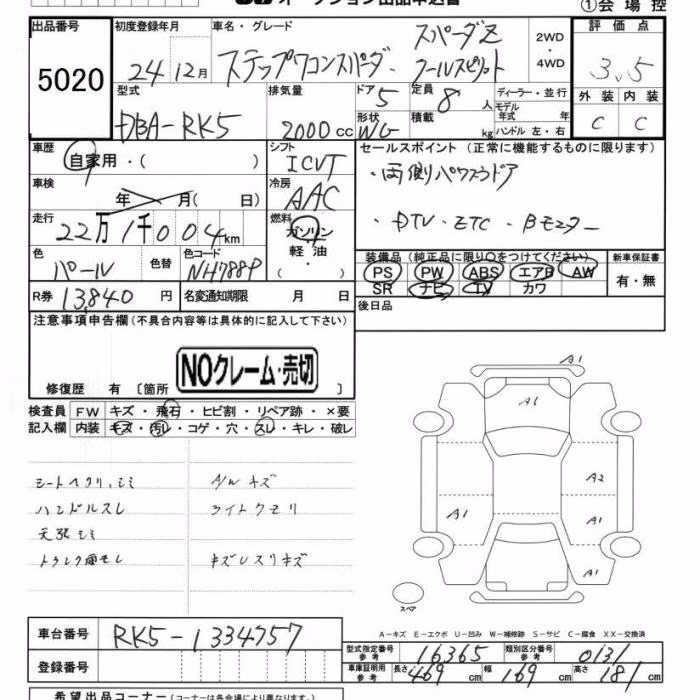 オークション出品申込書
①会場控
出品番号 5020
初度登録年月 24年12月
車名・グレード ステップワゴンスパーダ・スパーダZ クールスピリット
2WD・4WD
評価点 3.5
外装 C 内装 C
型式 DBA-RK5
排気量 2000cc
ドア 5 形状 WG
定員 8人 積載 kg
ディーラー・並行
モデル年式 年
ハンドル 左・右
車歴 自家用・( )
シフト ICVT
セールスポイント（正常に機能するものに限ります）
・両側パワースライドドア
・DTV・ETC・Bモニター
車検 年 月( 日)
冷房 AAC
走行 22万1千004km
燃料 ガソリン 軽油 ・( )
色 パール 色替 色コード NH788P
装備品（純正品に限り○をつけてください）
PS PW ABS エアB AW
SR ナビ TV カワ
新車保証書 有・無
R券 13,840円 名変通知期限 月 日
後日品
注意事項申告欄(不具合内容等は具体的に記入して下さい)
NOクレーム・売切
修復歴 有〔箇所 〕
検査員記入欄
FW キズ・飛石・ヒビ割・リペア跡・×要
内装 キズ・汚レ・コゲ・穴・スレ・キレ・破レ
シートヘタリ、シミ A/Wキズ
ハンドルスレ ライトクモリ
天張シミ
キズレスリキズ
A1
A1
A2
A1 A1
A1
スペア
A-キズ E-エクボ U-凹み W-補修跡 S-サビ C-腐食 XX-交換済
車台番号 RK5-1334757
型式指定番号 参考 16365 類別区分番号 参考 0131
登録番号
車庫証明用 参考 長さ 469cm 幅 169cm 高さ 181cm
希望出品コーナー(コーナーは各会場により異なります。)